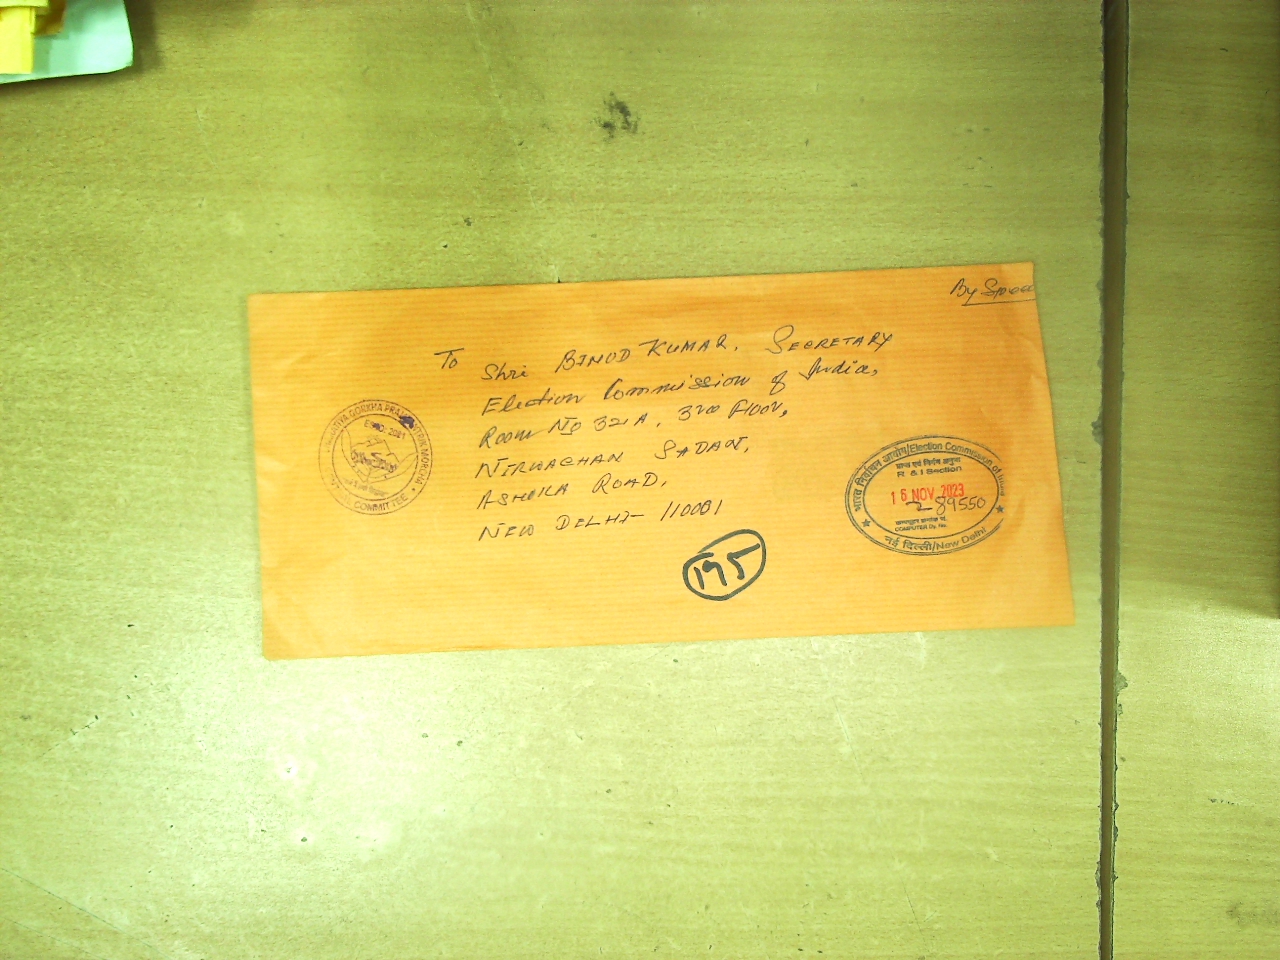 By Speed
To Shri BINOD KUMAR, SECRETARY
Election Commission of India,
Room No 321A, 3rd Floor,
NIRVACHAN SADAN,
ASHOKA ROAD,
NEW DELHI- 110001
BHARATIYA GORKHA PRAJATANTRIK MORCHA
ESTD. 2021
COMMITTEE
भारत निर्वाचन आयोग/Election Commission of India
प्राप्त एवं निर्गम अनुभाग
R & I Section
16 NOV 2023
289550
COMPUTER Dy. No.
नई दिल्ली/New Delhi
195